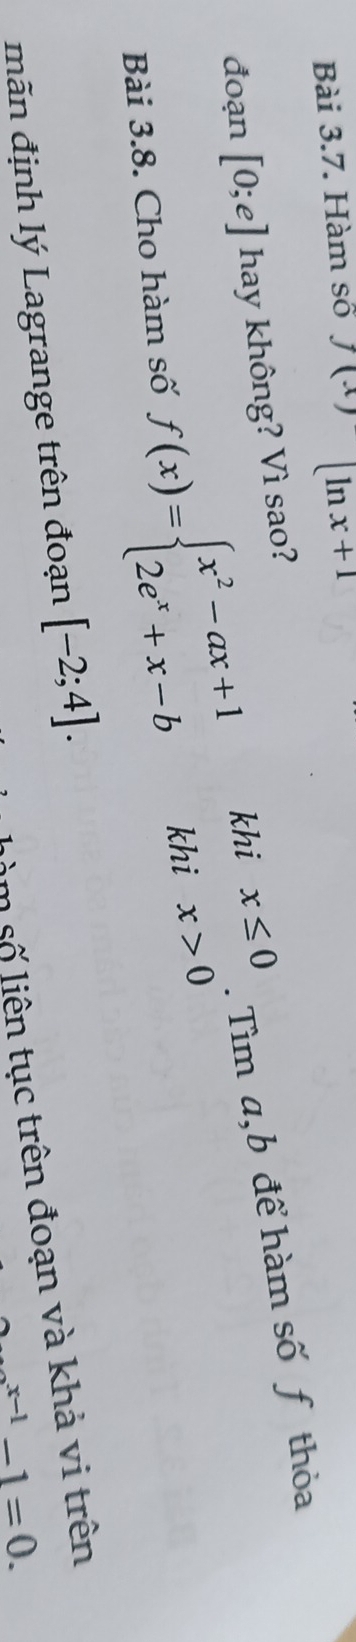 Bài 3.7. Hàm số f(x)
ln x + 1
đoạn [0;e] hay không? Vì sao?
Bài 3.8. Cho hàm số f(x) = { x² − ax + 1 khi x ≤ 0
2eˣ + x − b khi x > 0 . Tìm a,b để hàm số f thỏa
mãn định lý Lagrange trên đoạn [−2;4].
số liên tục trên đoạn và khả vi trên
ˣ⁻¹ − 1 = 0.